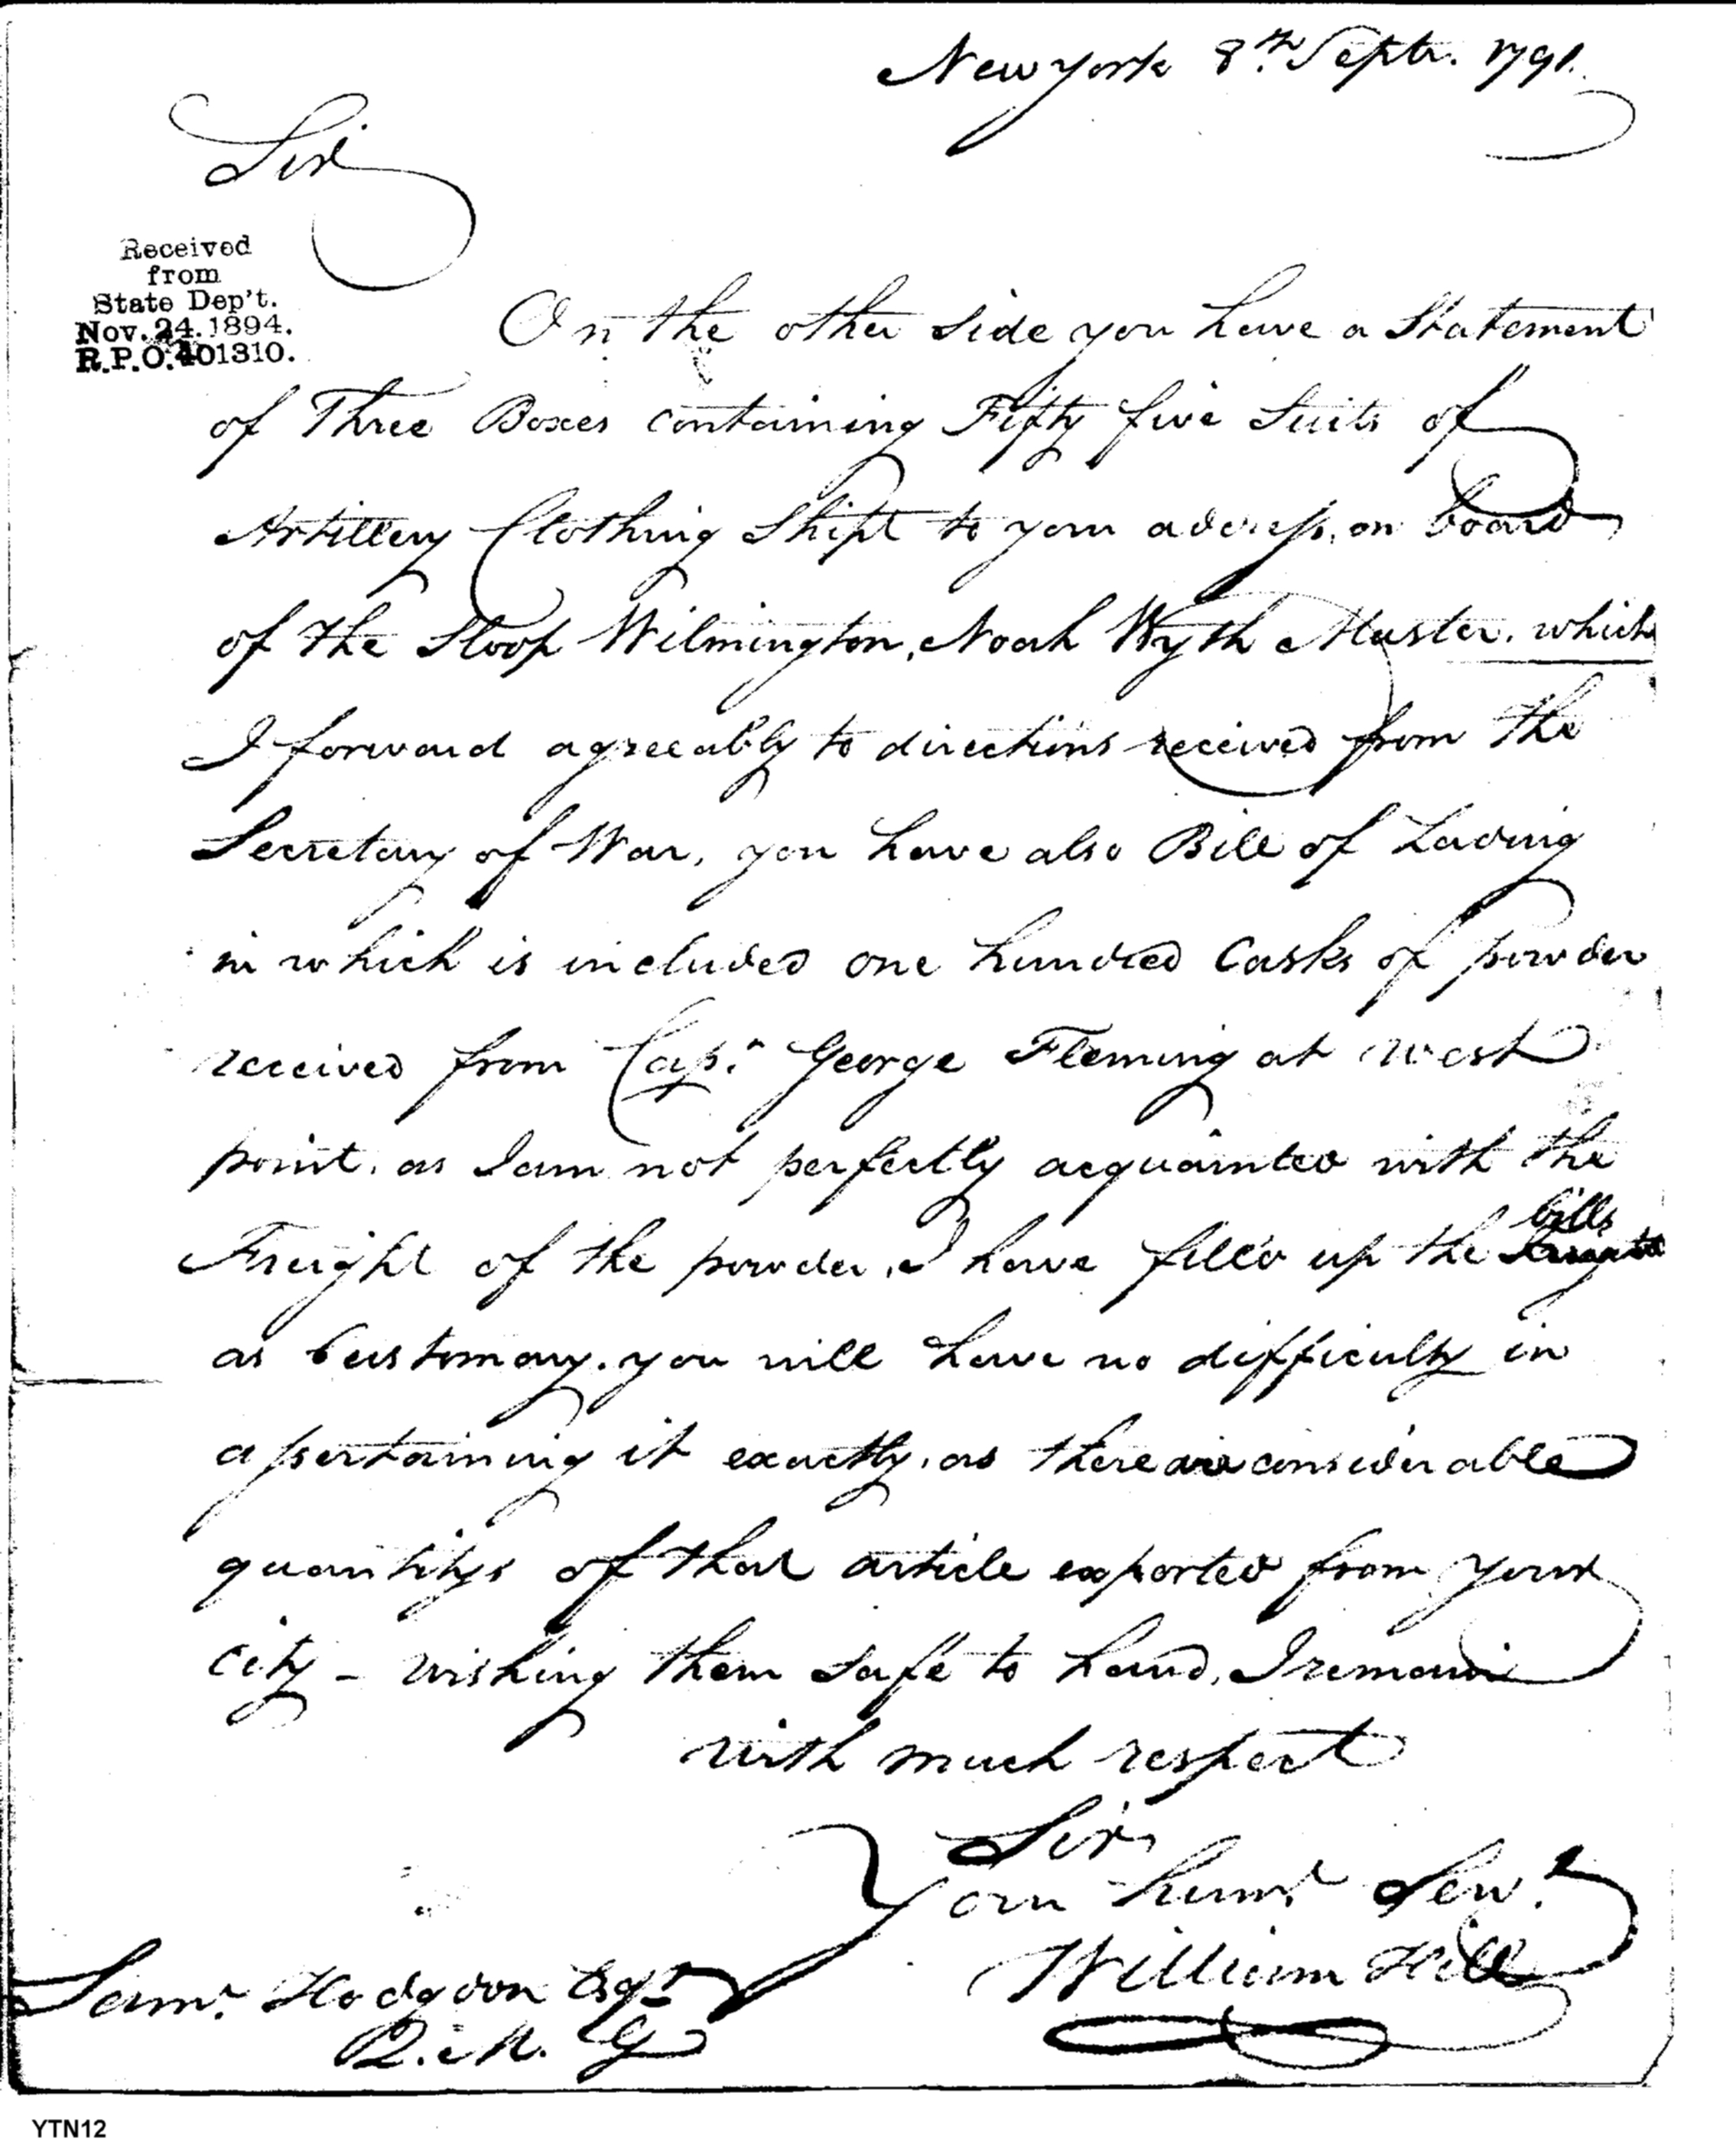 New york 8th Septr. 1791.
Sir
Received
from
State Dep't.
Nov. 24. 1894.
R.P.O. 401310.
On the other side you have a Statement
of Three Boxes containing Fifty five Suits of
Artillery Clothing Shipt to your address, on board
of the Sloop Wilmington, Noah Wyth Master, which
I forward agreeably to directions received from the
Secretary of War, you have also Bill of Lading
in which is included one hundred Casks of powder
received from Capn. George Fleming at west
point, as I am not perfectly acquainted with the
bills
Freight of the powder, I have fill'd up the
as Customary. you will have no difficulty in
assertaining it exactly, as there are considerable
quantitys of that article exported from your
city - wishing them safe to hand, I remain
with much respect
Sir,
Your huml. Servt.
William Hill
Saml. Hodgdon Esqr.
Q. M. G
YTN12